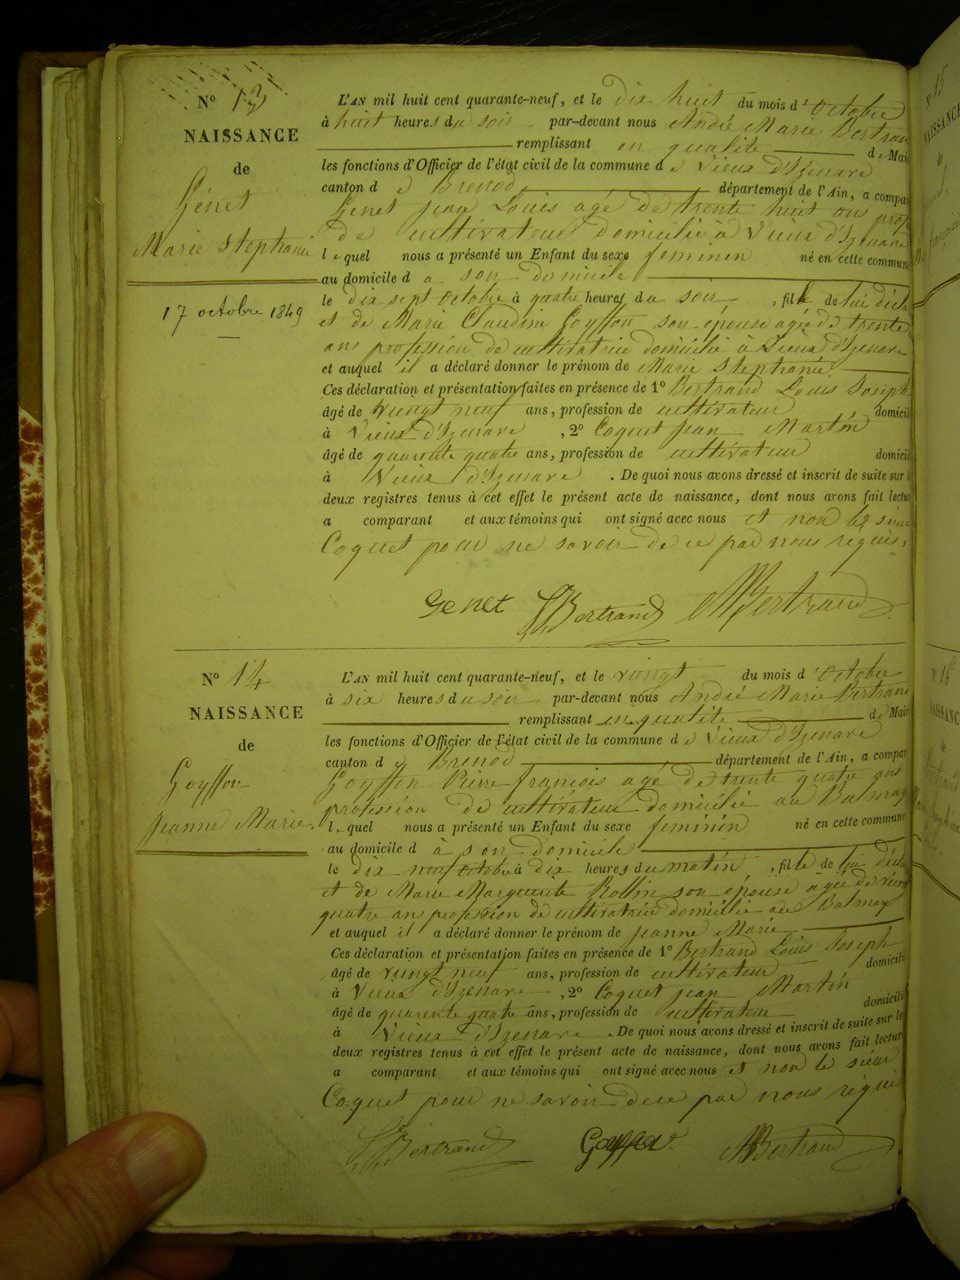 N° 13
NAISSANCE
de
Génet
Marie Stephanie
17 octobre 1849
L'AN mil huit cent quarante-neuf, et le dix huit du mois d'Octobre
à huit heures du soir par-devant nous André Marie Bertrand
remplissant en qualité de Mair
les fonctions d'Officier de l'état civil de la commune de Vieux d'Izenave
canton de Brenod département de l'Ain, a compar
Genet jean Louis agé de trente huit ans prof
de cultivateur domicilié à Vieux d'Izenave
lequel nous a présenté un Enfant du sexe feminin né en cette commune
au domicile d a son domicile
le dix sept octobre à quatre heures du soir, fille de lui décla
et de Marie Claudine Goyffon son épouse agée de trente
ans profession de cultivatrice domicilié à Vieux d'Izenave
et auquel il a déclaré donner le prénom de Marie Stephanie
Ces déclaration et présentation faites en présence de 1° Bertrand Louis Joseph
âgé de vingt neuf ans, profession de cultivateur domicil
à Vieux d'Izenave, 2° Coquet jean Martin
âgé de quarente quatre ans, profession de cultivateur domicil
à Vieux d'Izenave. De quoi nous avons dressé et inscrit de suite sur l
deux registres tenus à cet effet le présent acte de naissance, dont nous avons fait lectur
a comparant et aux témoins qui ont signé avec nous et non le sieur
Coquet pour ne savoir de ce par nous requis,
Genet Bertrand Bertrand
N° 14
NAISSANCE
de
Goyffon
Jeanne Marie
L'AN mil huit cent quarante-neuf, et le vingt du mois d'Octobre
à six heures du soir par-devant nous André Marie Bertrand
remplissant en qualité de Mair
les fonctions d'Officier de l'état civil de la commune de Vieux d'Izenave
canton d Brenod département de l'Ain, a compar
Goyffon Pierre françois agé de trente quatre ans
profession de cultivateur domicilié au Balmay
lequel nous a présenté un Enfant du sexe feminin né en cette commune
au domicile d à son domicile
le dix neuf octobre à dix heures du matin, fille de lui décla
et de Marie Marguerite Bollin son épouse agée de vingt
quatre ans profession de cultivatrice domicilié au Balmay
et auquel il a déclaré donner le prénom de jeanne Marie
Ces déclaration et présentation faites en présence de 1° Bertrand Louis Joseph
âgé de vingt neuf ans, profession de cultivateur domicili
à Vieux d'Izenave, 2° Coquet jean Martin
âgé de quarente quatre ans, profession de cultivateur domicili
à Vieux d'Izenave. De quoi nous avons dressé et inscrit de suite sur le
deux registres tenus à cet effet le présent acte de naissance, dont nous avons fait lectur
a comparant et aux témoins qui ont signé avec nous et non le sieur
Coquet pour ne savoir de ce par nous requi
Bertrand Goyffon Bertrand